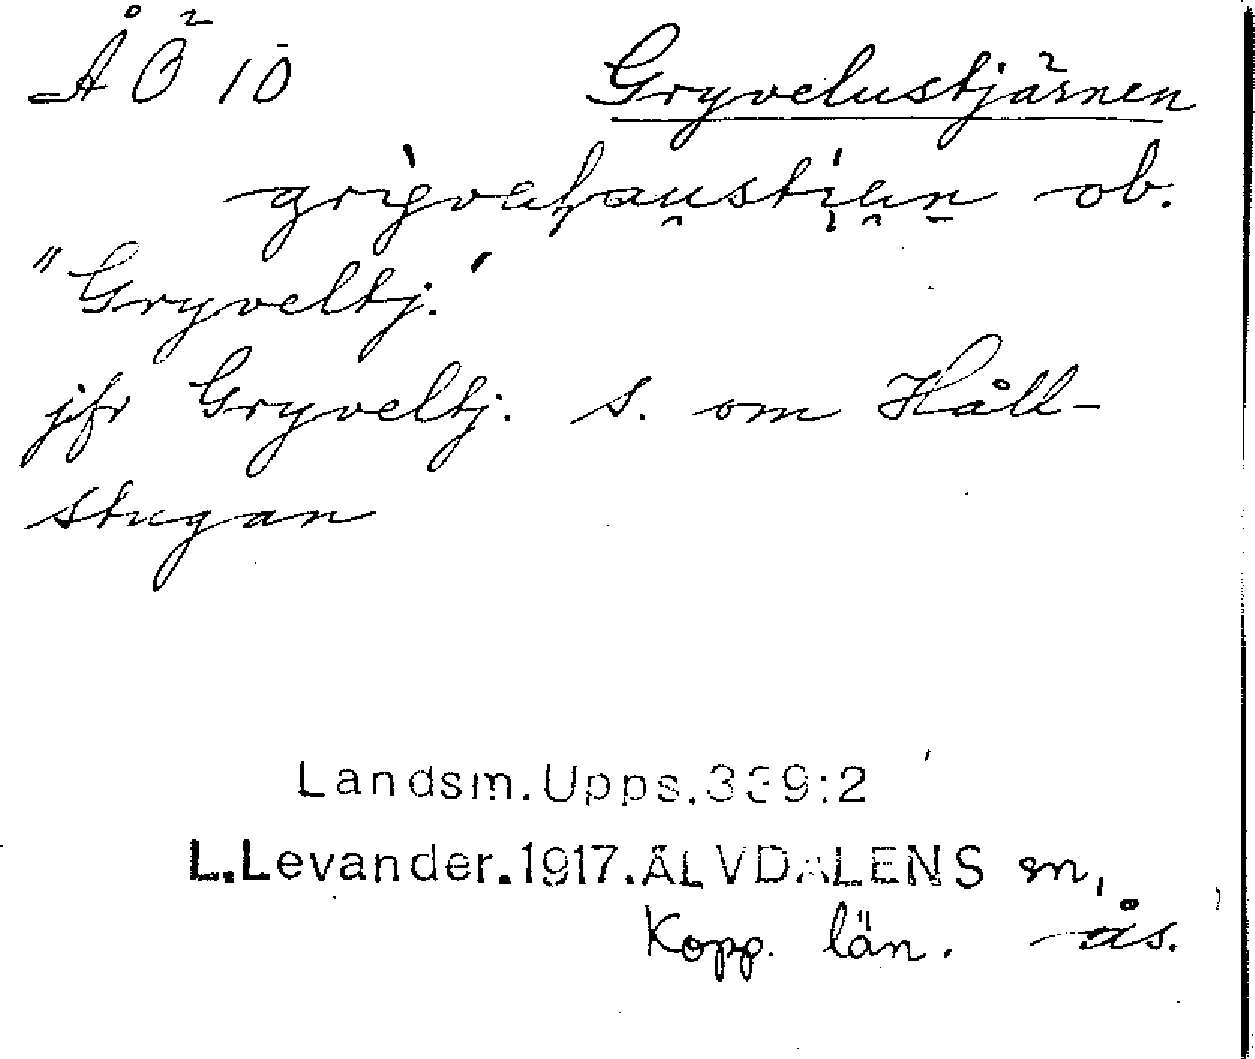 ÅÖ² 10 Gryvelustjärnen
ob.
"Gryveltj."
jfr Gryveltj. s. om Håll-
stugan
Landsm.Upps.339:2
L.Levander.1917.ÄLVDALENS sn,
Kopp. län. ås.